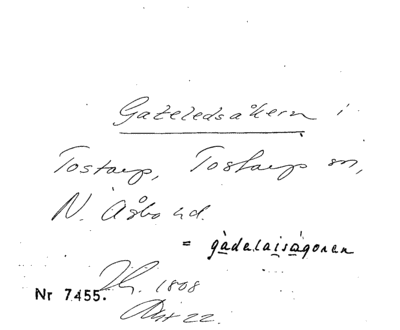 Gateledsåkern i
Tostarp, Tostarp sn,
N. Åsbo hd.
= gàdalaisågonen
Nr 7455. 1808
22.